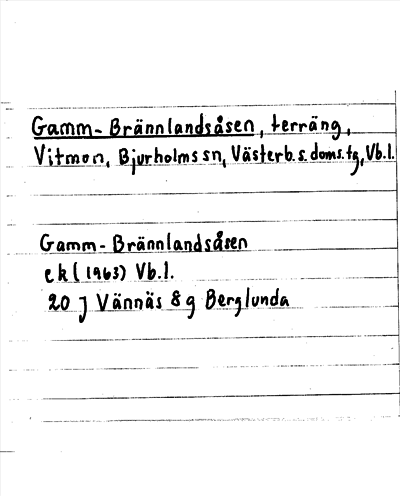 Gamm-Brännlandsåsen, terräng,
Vitmon, Bjurholms sn, Västerb. s. doms. tg, Vb.l.
Gamm-Brännlandsåsen
ek (1963) Vb.l.
20 J Vännäs 8 g Berglunda